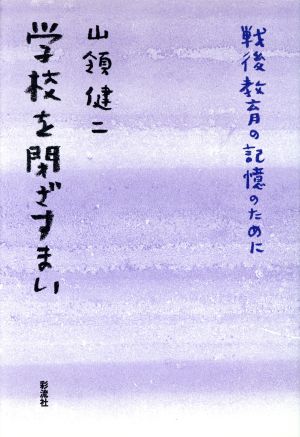 戦後教育の記憶のために
山領健二
学校を閉ざすまい
彩流社